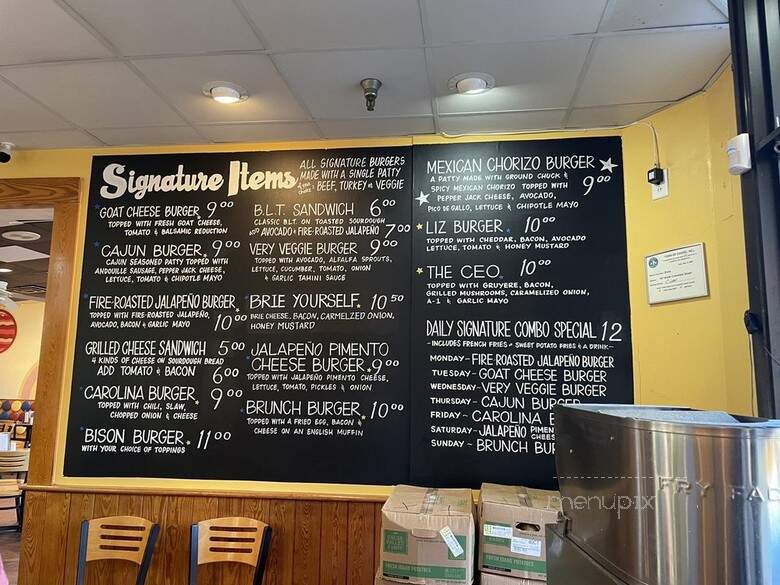 Signature Items
ALL SIGNATURE BURGERS
MADE WITH A SINGLE PATTY
BEEF, TURKEY OR VEGGIE
GOAT CHEESE BURGER 9.00
TOPPED WITH FRESH GOAT CHEESE,
TOMATO & BALSAMIC REDUCTION
CAJUN BURGER 9.00
CAJUN SEASONED PATTY TOPPED WITH
ANDOUILLE SAUSAGE, PEPPER JACK CHEESE,
LETTUCE, TOMATO & CHIPOTLE MAYO
FIRE-ROASTED JALAPEÑO BURGER
TOPPED WITH FIRE-ROASTED JALAPEÑO,
AVOCADO, BACON & GARLIC MAYO 10.00
GRILLED CHEESE SANDWICH 5.00
4 KINDS OF CHEESE ON SOURDOUGH BREAD
ADD TOMATO & BACON 6.00
CAROLINA BURGER 9.00
TOPPED WITH CHILI, SLAW,
CHOPPED ONION & CHEESE
BISON BURGER 11.00
WITH YOUR CHOICE OF TOPPINGS
B.L.T. SANDWICH 6.00
CLASSIC BLT ON TOASTED SOURDOUGH
ADD AVOCADO & FIRE-ROASTED JALAPEÑO 7.00
VERY VEGGIE BURGER 9.00
TOPPED WITH AVOCADO, ALFALFA SPROUTS,
LETTUCE, CUCUMBER, TOMATO, ONION
& GARLIC TAHINI SAUCE
BRIE YOURSELF 10.50
BRIE CHEESE, BACON, CARMELZED ONION,
HONEY MUSTARD
JALAPEÑO PIMENTO
CHEESE BURGER 9.00
TOPPED WITH JALAPEÑO PIMENTO CHEESE,
LETTUCE, TOMATO, PICKLES & ONION
BRUNCH BURGER 10.00
TOPPED WITH A FRIED EGG, BACON &
CHEESE ON AN ENGLISH MUFFIN
MEXICAN CHORIZO BURGER
A PATTY MADE WITH GROUND CHUCK &
SPICY MEXICAN CHORIZO TOPPED WITH 9.00
PEPPER JACK CHEESE, AVOCADO,
PICO DE GALLO, LETTUCE & CHIPOTLE MAYO
LIZ BURGER 10.00
TOPPED WITH CHEDDAR, BACON, AVOCADO
LETTUCE, TOMATO & HONEY MUSTARD
THE CEO 10.00
TOPPED WITH GRUYERE, BACON,
GRILLED MUSHROOMS, CARAMELIZED ONION,
A-1 & GARLIC MAYO
DAILY SIGNATURE COMBO SPECIAL 12
-INCLUDES FRENCH FRIES OR SWEET POTATO FRIES & A DRINK-
MONDAY- FIRE-ROASTED JALAPEÑO BURGER
TUESDAY- GOAT CHEESE BURGER
WEDNESDAY- VERY VEGGIE BURGER
THURSDAY- CAJUN BURGER
FRIDAY- CAROLINA B
SATURDAY- JALAPEÑO PIMEN
CHEES
SUNDAY- BRUNCH BUR
menupix
FRY FA